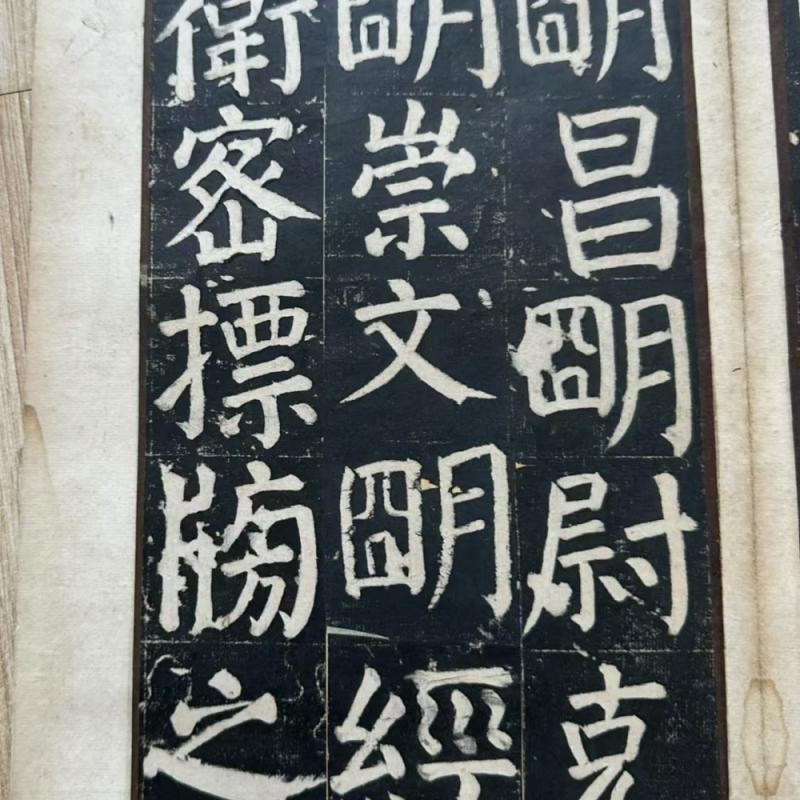 朙昌朙尉克
朙崇文朙經
衛密摽牓之